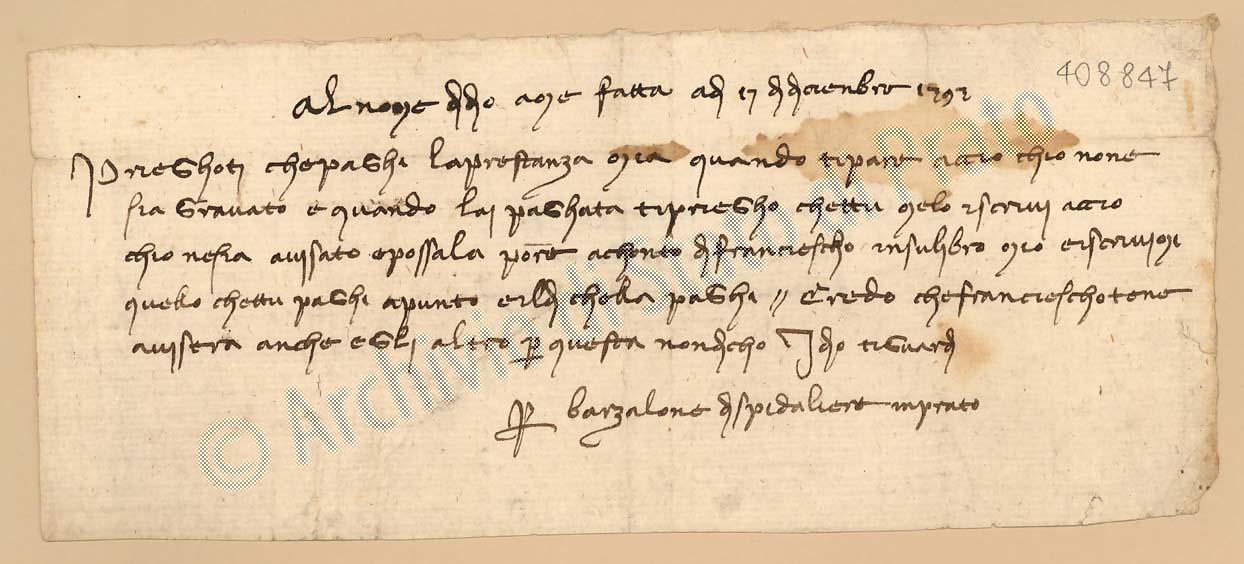 408847
Al nome di dio ame fatta adi 17 di diciembre 1392
Prieghoti che paghi la prestanza mia quando ti pare accio chio none
sia gravato e quando lai paghata ti priegho chettu melo iscrivi accio
chio nesia avisato e possala porre a chonto di franciescho in sulibro mio e iscrivimi
quello chettu paghi apunto e il di chella paghi // Credo che francieschotene
avisera anche egli altro per questa non dicho Idio ti guardi
Per barzalone di spidaliere in prato
© Archivio di Stato di Prato